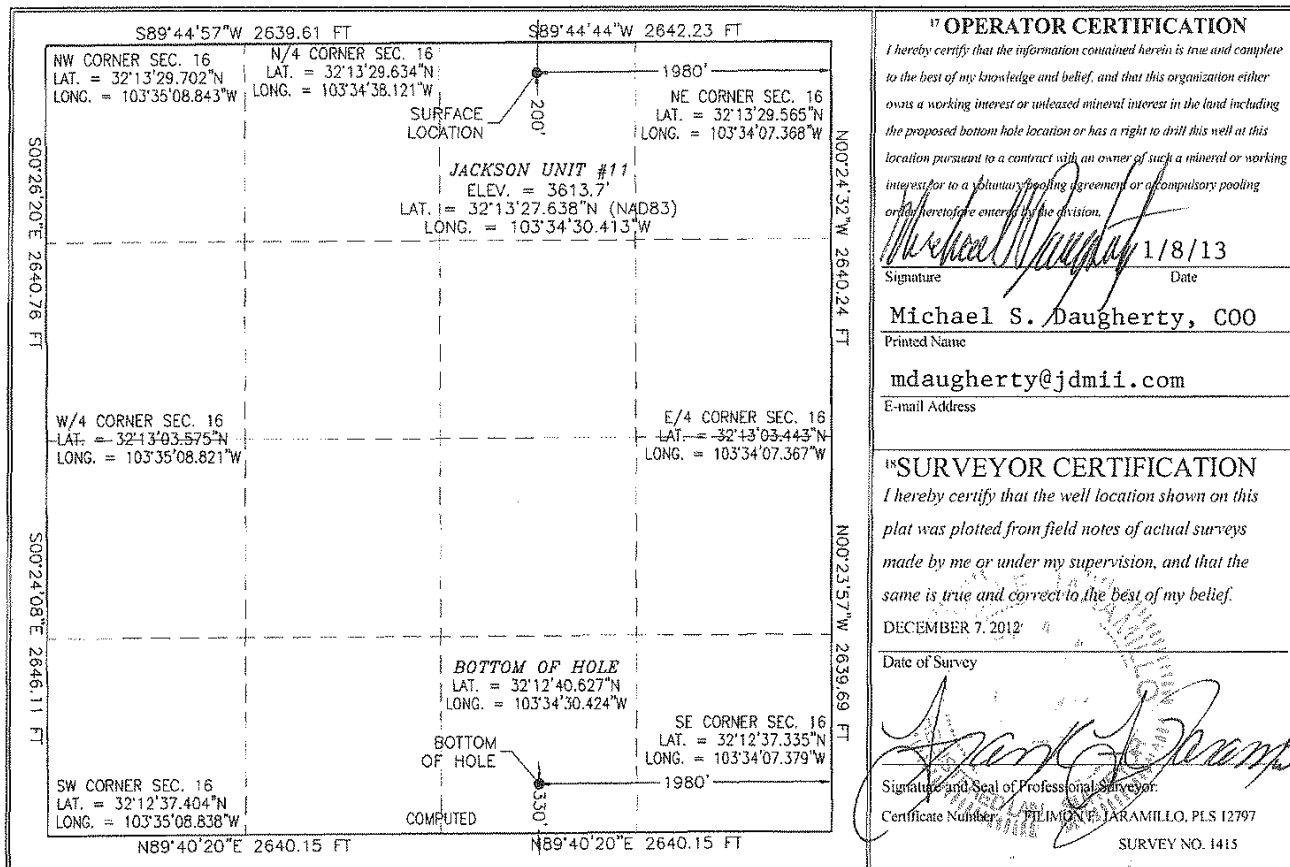 S89°44'57"W 2639.61 FT
S89°44'44"W 2642.23 FT
NW CORNER SEC. 16
LAT. = 32°13'29.702"N
LONG. = 103°35'08.843"W
N/4 CORNER SEC. 16
LAT. = 32°13'29.634"N
LONG. = 103°34'38.121"W
1980'
SURFACE
LOCATION
200'
NE CORNER SEC. 16
LAT. = 32°13'29.565"N
LONG. = 103°34'07.368"W
JACKSON UNIT #11
ELEV. = 3613.7'
LAT. = 32°13'27.638"N (NAD83)
LONG. = 103°34'30.413"W
S00°26'20"E 2640.76 FT
N00°24'32"W 2640.24 FT
W/4 CORNER SEC. 16
LAT. = 32°13'03.575"N
LONG. = 103°35'08.821"W
E/4 CORNER SEC. 16
LAT. = 32°13'03.443"N
LONG. = 103°34'07.367"W
S00°24'08"E 2646.11 FT
N00°23'57"W 2639.69 FT
BOTTOM OF HOLE
LAT. = 32°12'40.627"N
LONG. = 103°34'30.424"W
BOTTOM
OF HOLE
SE CORNER SEC. 16
LAT. = 32°12'37.335"N
LONG. = 103°34'07.379"W
1980'
330'
SW CORNER SEC. 16
LAT. = 32°12'37.404"N
LONG. = 103°35'08.838"W
COMPUTED
N89°40'20"E 2640.15 FT
N89°40'20"E 2640.15 FT
17 OPERATOR CERTIFICATION
I hereby certify that the information contained herein is true and complete
to the best of my knowledge and belief, and that this organization either
owns a working interest or unleased mineral interest in the land including
the proposed bottom hole location or has a right to drill this well at this
location pursuant to a contract with an owner of such a mineral or working
interest, or to a voluntary pooling agreement or a compulsory pooling
order heretofore entered by the division.
1/8/13
Signature Date
Michael S. Daugherty, COO
Printed Name
mdaugherty@jdmii.com
E-mail Address
18 SURVEYOR CERTIFICATION
I hereby certify that the well location shown on this
plat was plotted from field notes of actual surveys
made by me or under my supervision, and that the
same is true and correct to the best of my belief.
DECEMBER 7, 2012
Date of Survey
Signature and Seal of Professional Surveyor:
Certificate Number FILIMON F. JARAMILLO, PLS 12797
SURVEY NO. 1415